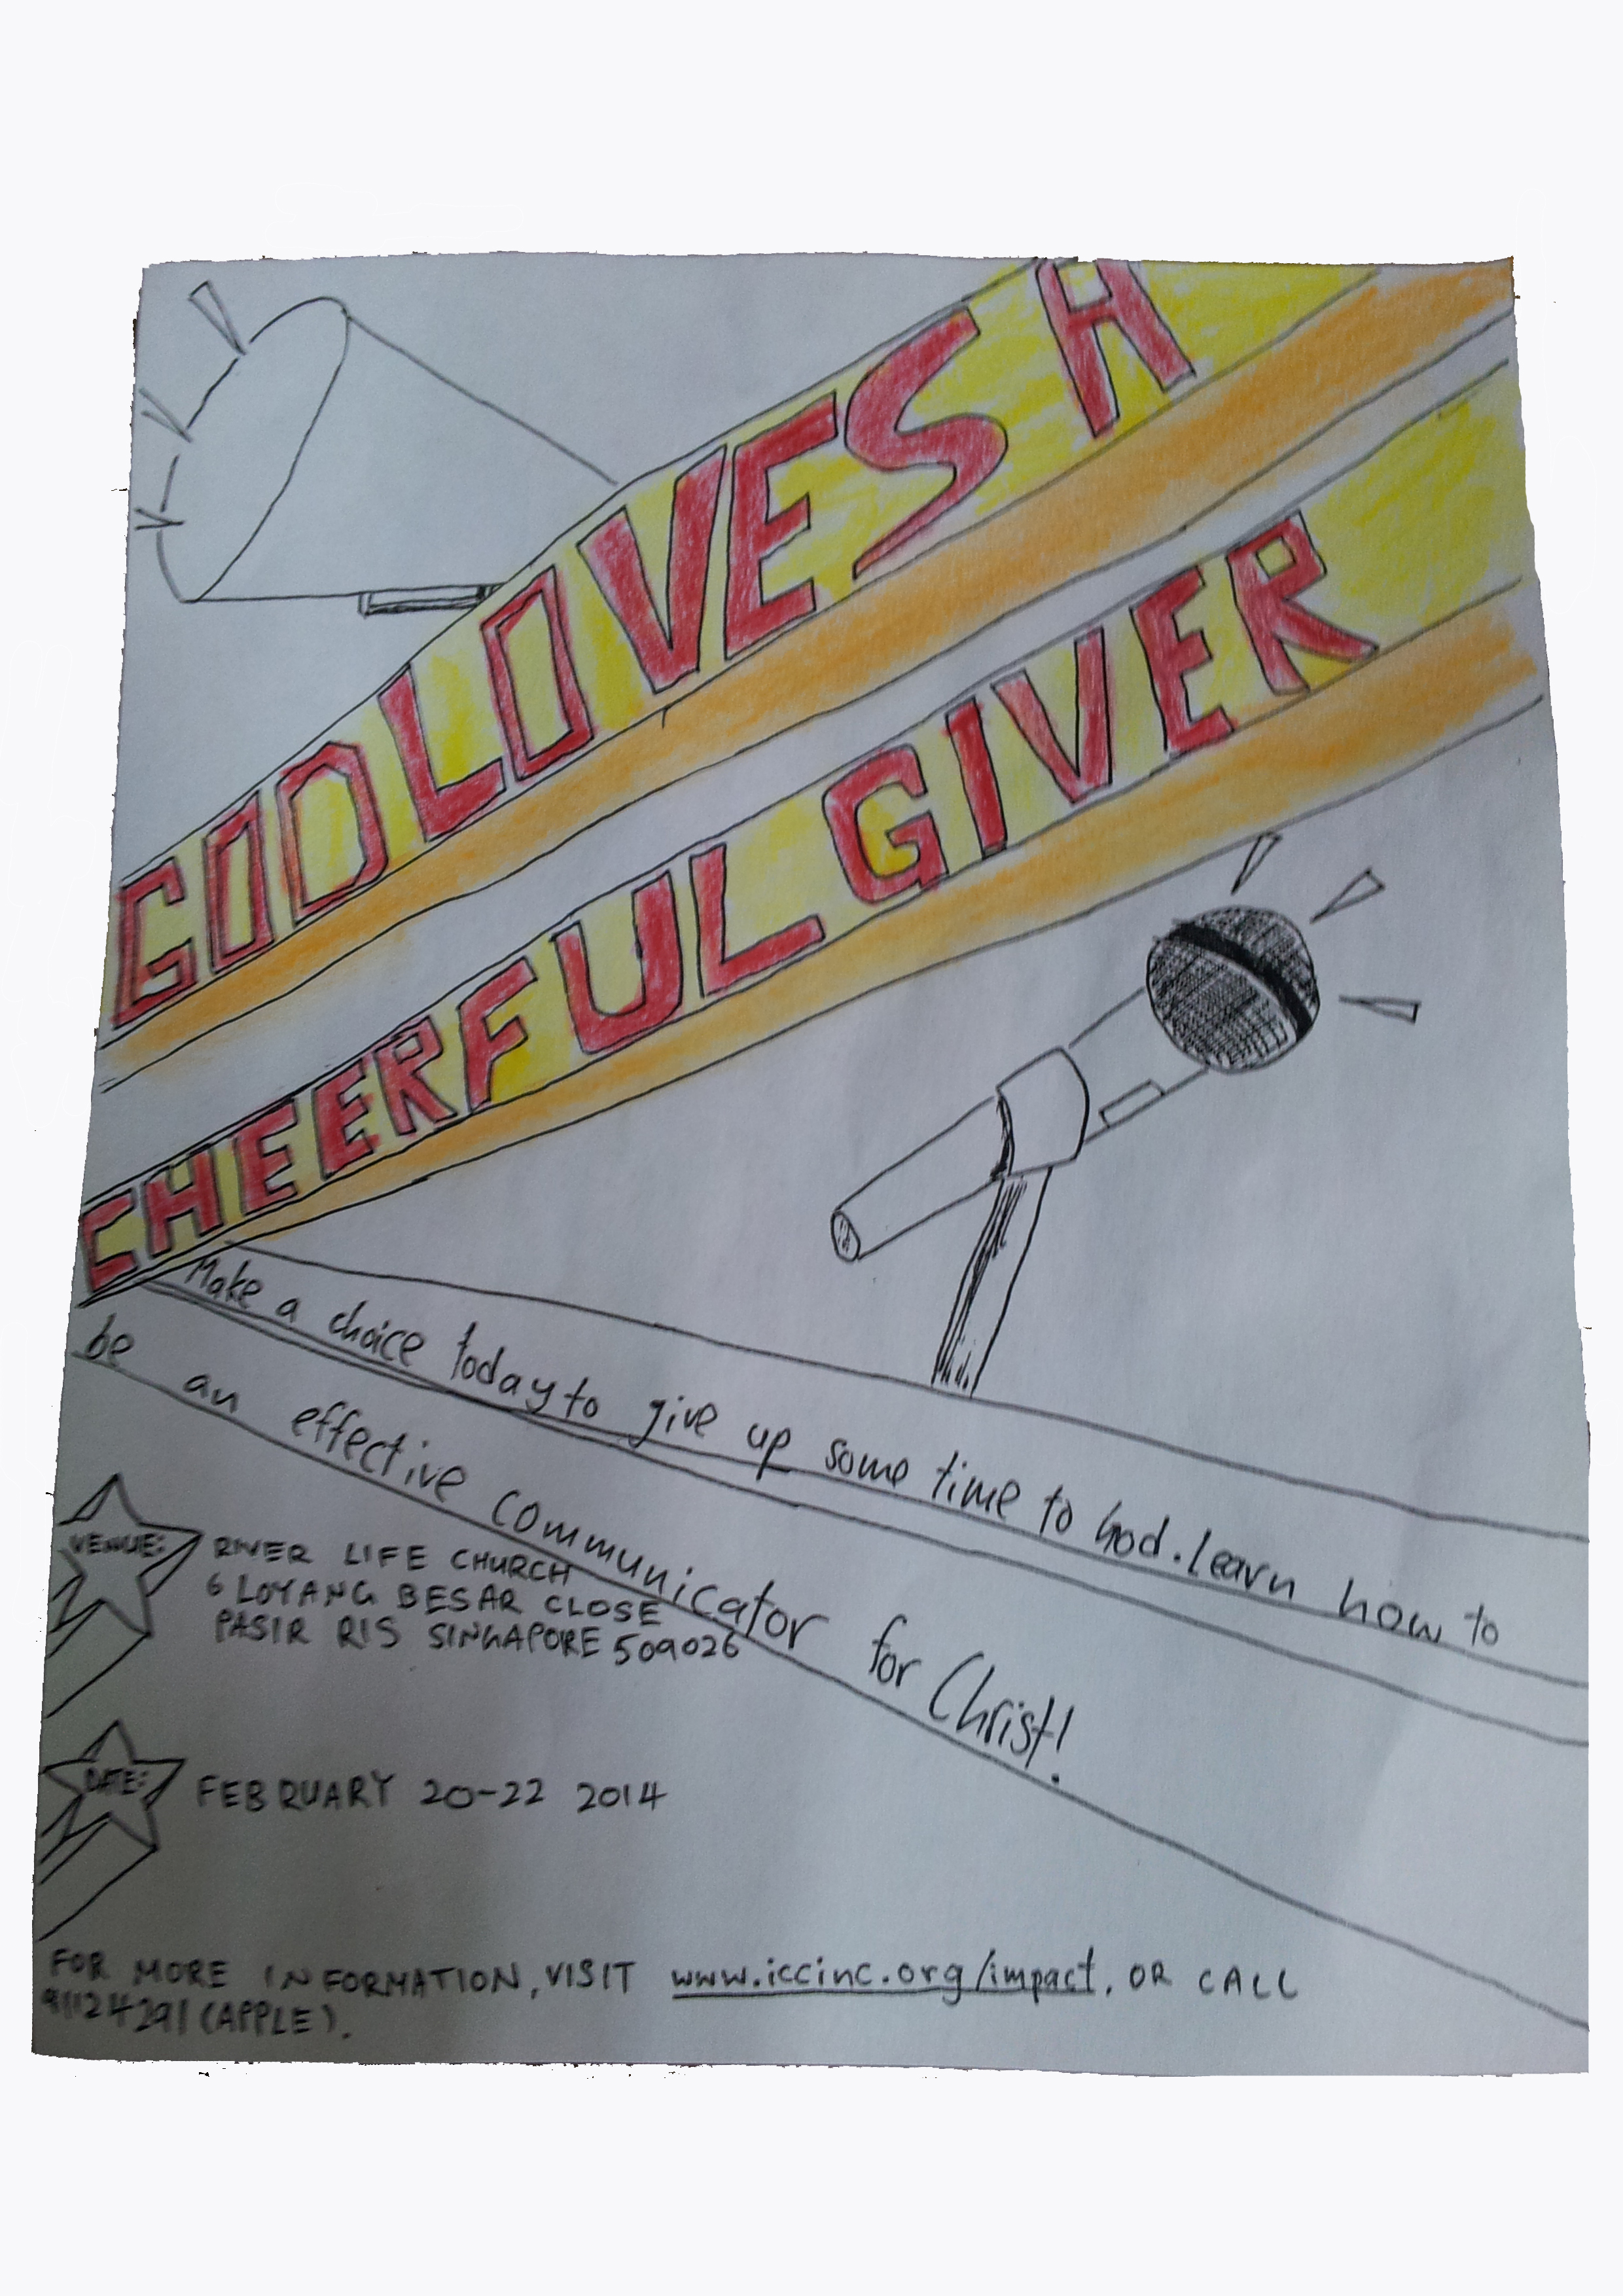 GOD LOVES A
CHEERFUL GIVER
Make a choice today to give up some time to God. Learn how to
be an effective communicator for Christ!
VENUE: RIVER LIFE CHURCH
6 LOYANG BESAR CLOSE
PASIR RIS SINGAPORE 509026
DATE: FEBRUARY 20-22 2014
FOR MORE INFORMATION, VISIT www.iccinc.org/impact. OR CALL
91124291 (APPLE).